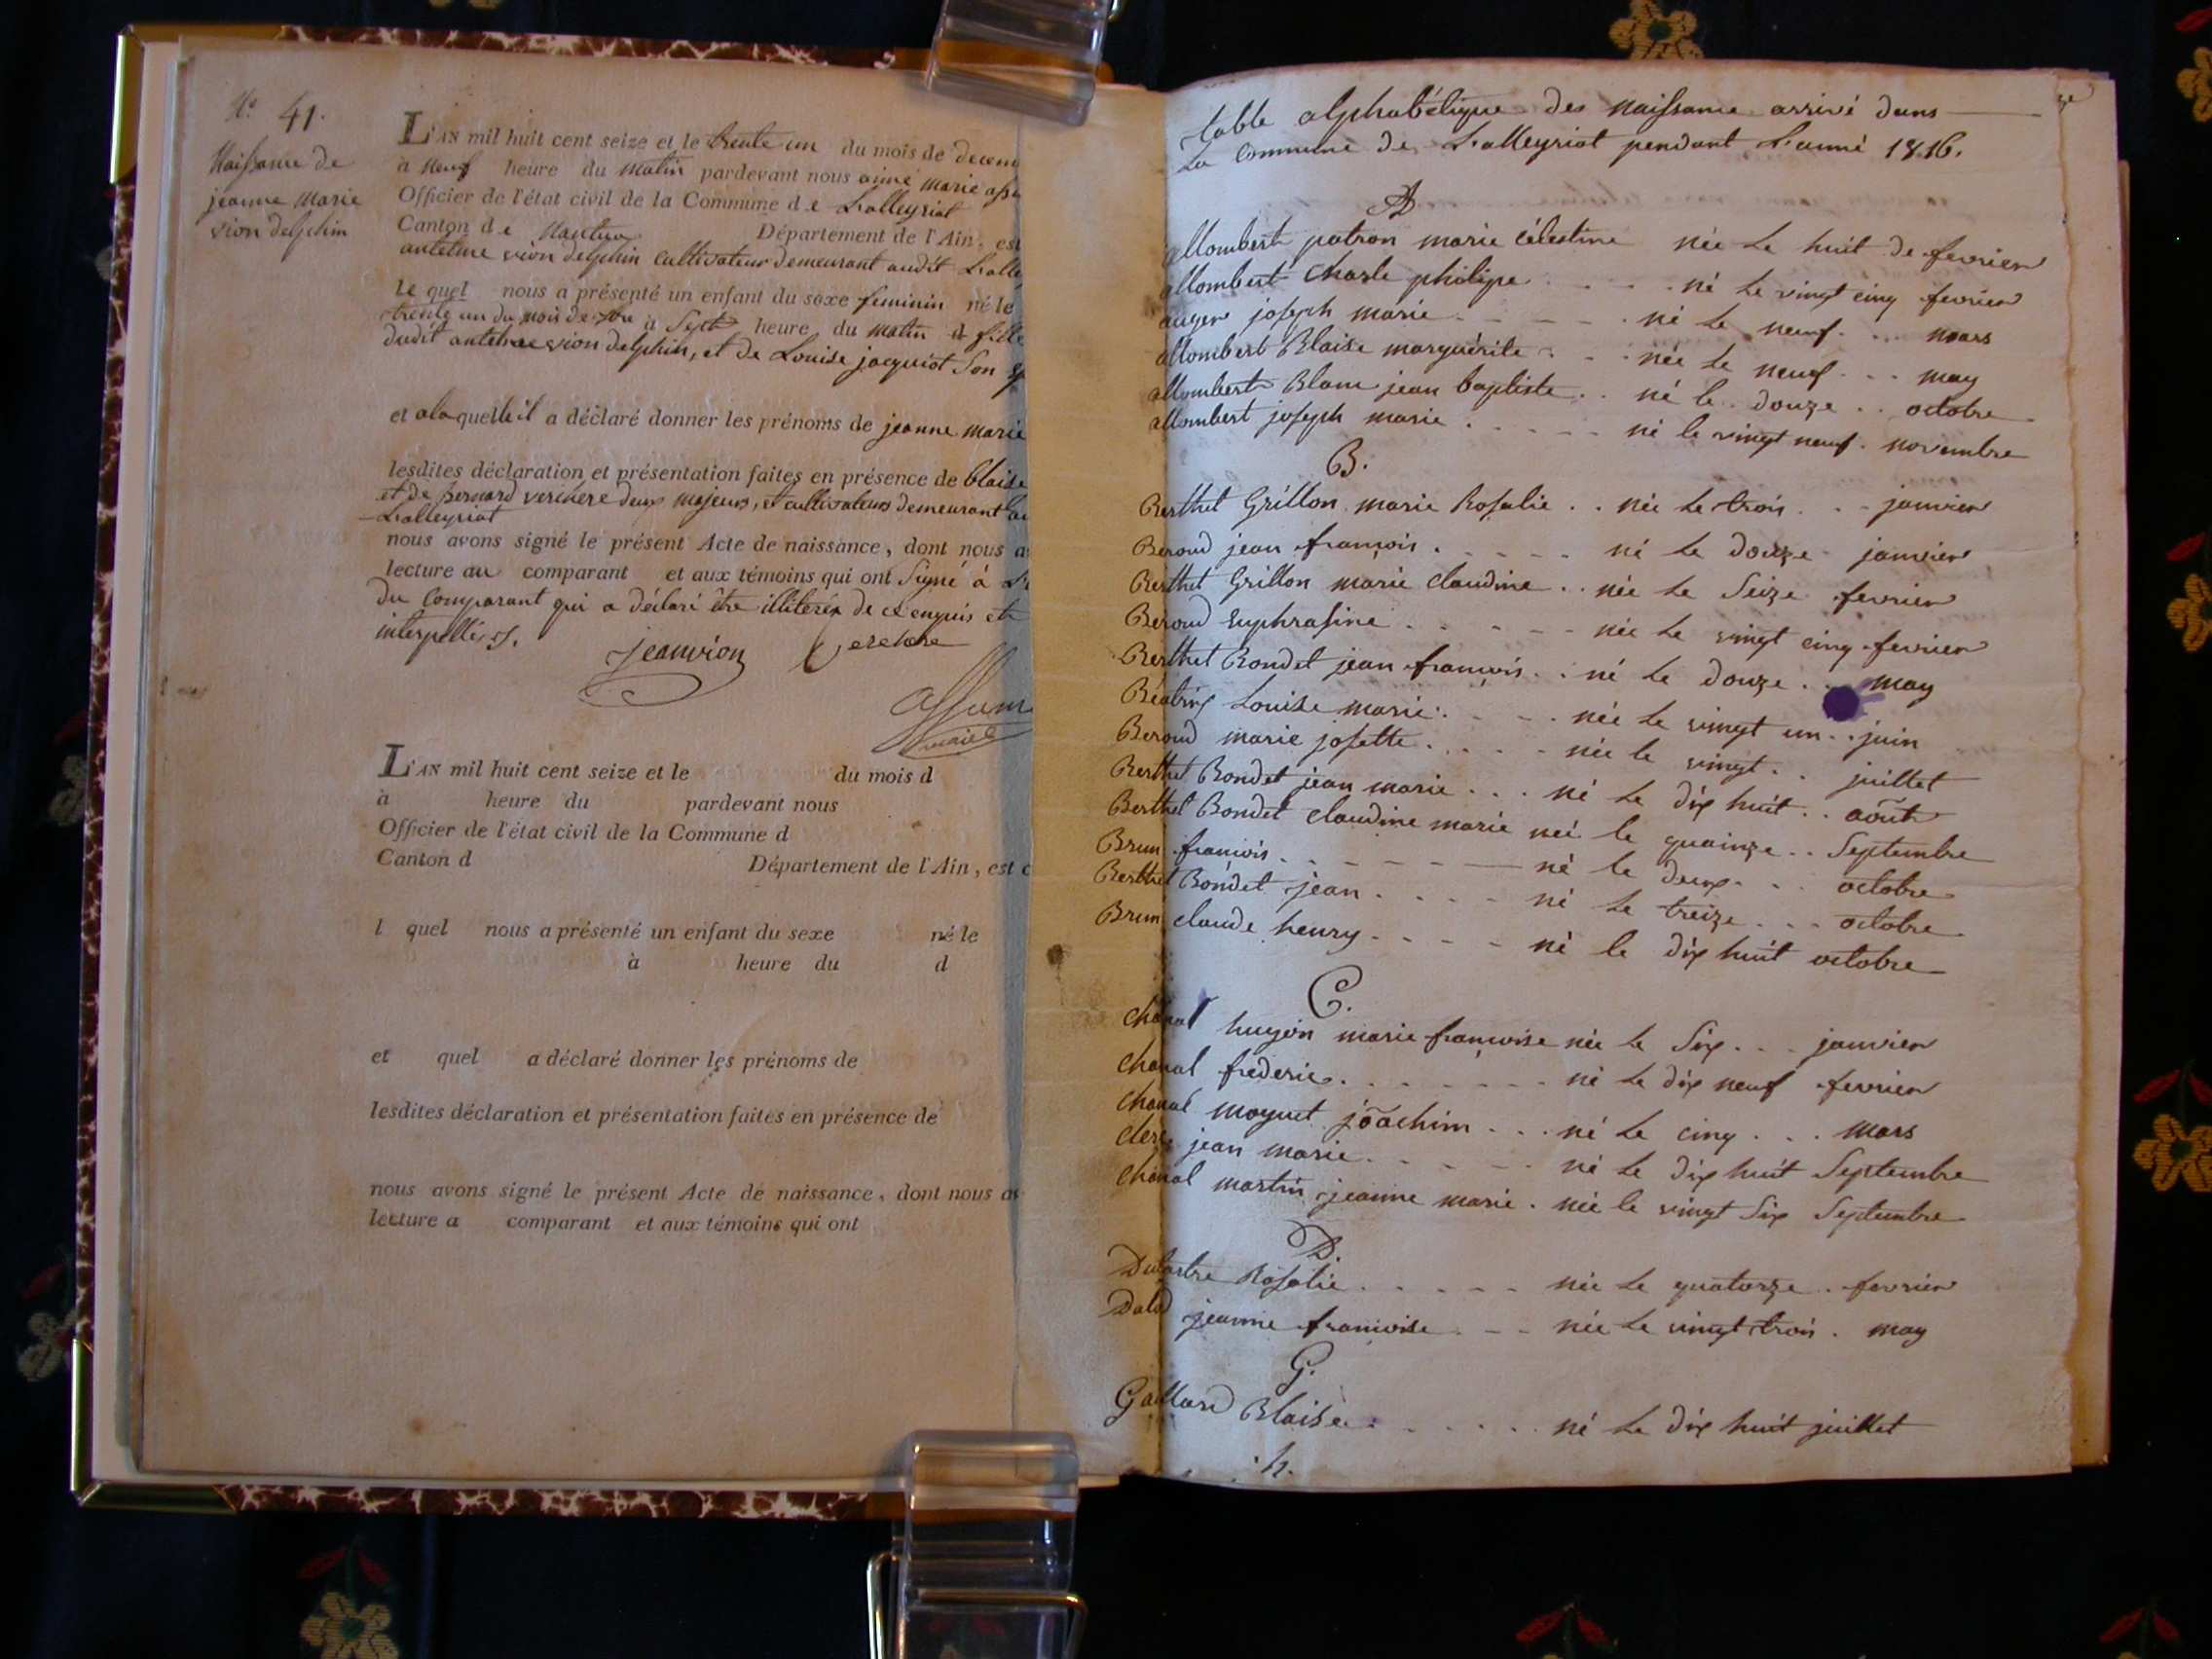 N.º 41.
Naissance de
jeanne Marie
vion delphin
L'AN mil huit cent seize et le trente un du mois de decem
à neuf heure du matin pardevant nous aimé marie
Officier de l'état civil de la Commune de Lalleyriat
Canton de Nantua Département de l'Ain, est
antelme vion delphin cultivateur demeurant audit Lalle
le quel nous a présenté un enfant du sexe feminin né le
trente un du mois de à Sept heure du matin fille
dudit antelme vion delphin, et de Louise jacquiot Son
et alaquelle il a déclaré donner les prénoms de jeanne marie
lesdites déclaration et présentation faites en présence de blaise
et de bernard verchere deux majeurs, et cultivateurs demeurant
Lalleyriat
nous avons signé le présent Acte de naissance, dont nous a
lecture au comparant et aux témoins qui ont Signé à
du comparant qui a déclaré être illiteré de ce enquis et
interpellé
jeanvion Verchere
maire
L'AN mil huit cent seize et le du mois d
à heure du pardevant nous
Officier de l'état civil de la Commune d
Canton d Département de l'Ain, est c
l quel nous a présenté un enfant du sexe né le
à heure du d
et quel a déclaré donner les prénoms de
lesdites déclaration et présentation faites en présence de
nous avons signé le présent Acte de naissance, dont nous av
lecture a comparant et aux témoins qui ont
table alphabétique des naissance arrivé dans
La Commune de Lalleyriat pendant L'anné 1816.
A
allombert patron marie célestine née Le huit de fevrier
allombert Charle philipe né Le vingt cinq fevrier
auger joseph marie né Le neuf mars
allombert Blaise marguérite née Le neuf may
allombert Blanc jean baptiste né le douze octobre
allombert joseph marie né le vingt neuf novembre
B.
Berthet Grillon marie Rosalie née Le trois janvier
Beroud jean françois né Le douze janvier
Berthet Grillon marie claudine née Le Seize fevrier
Beroud Euphrasine née Le vingt cinq fevrier
Berthet Bondet jean françois né Le douze may
Béatrix Louise marie née Le vingt un juin
Beroud marie josette née le vingt juillet
Berthet Bondet jean marie né Le dix huit août
Berthet Bondet claudine marie neé le quainze Septembre
Brun francois né le deux octobre
Berthet Bondet jean né Le treize octobre
Brun claude henry né le dix huit octobre
C.
Chanal hugon marie françoise née Le Six janvier
Chanal frederic né Le dix neuf fevrier
Chanal moynet joachim né Le cinq mars
Clerc jean marie né Le dix huit Septembre
Chanal martin jeanne marie née le vingt Six Septembre
D.
Dulastre Rosalie née Le quatorze fevrier
Dalod jeanne francoise née Le vingt trois may
G.
Gallard Blaise né Le dix huit juillet
h.